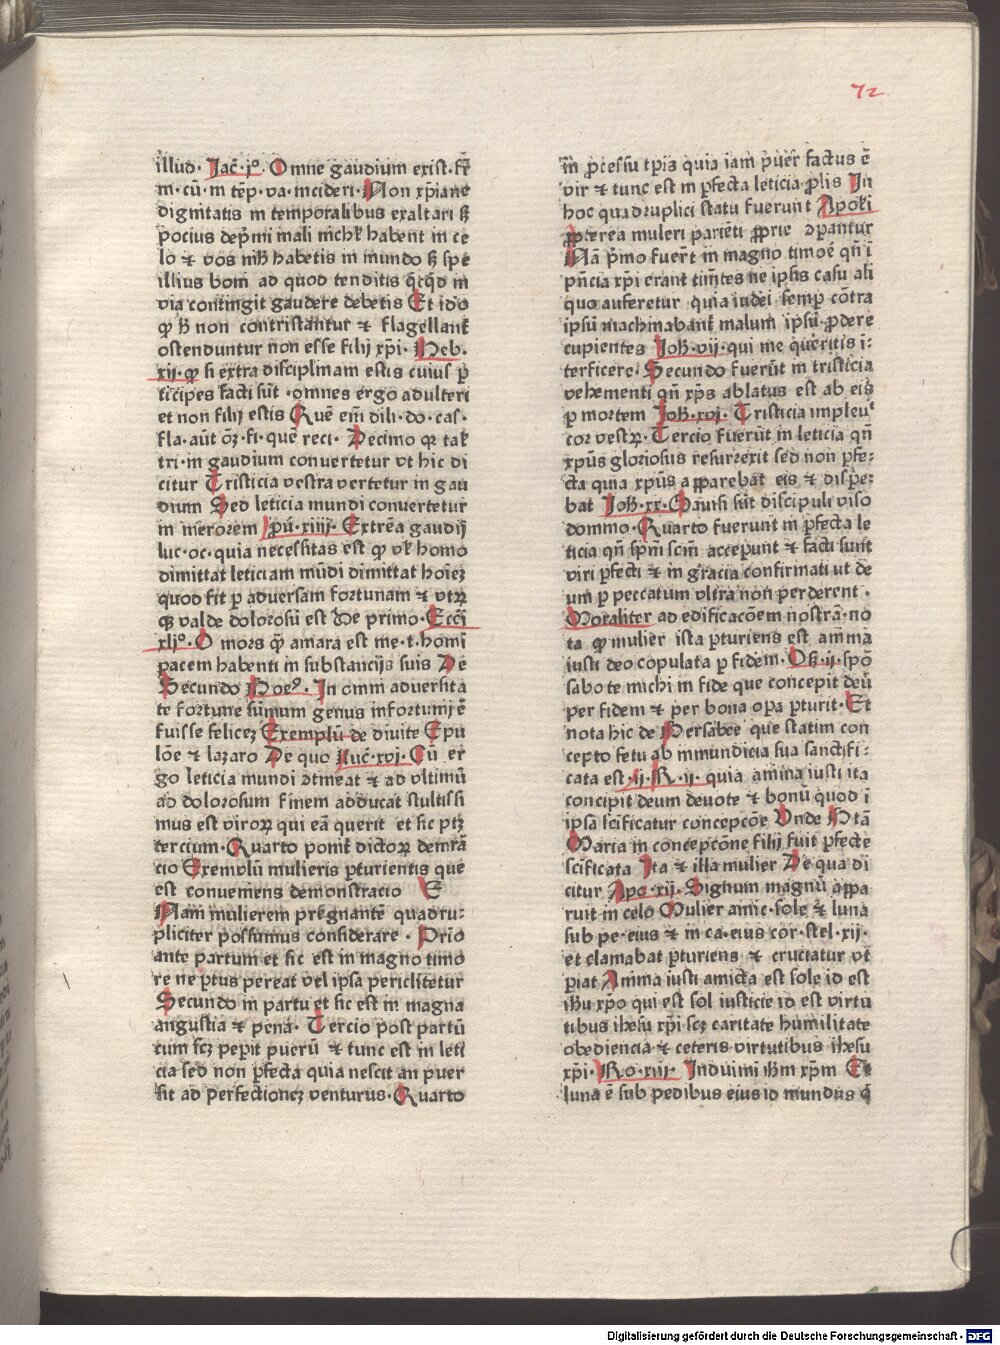 72
illud· Jac̄·i°. Omne gaudium exist·fr̄
m·cū·m tēp·va·incideri·Non xp̄iane
dignitatis in temporalibus exaltari s̄
pocius dep̄mi mali nichil habent in ce
lo ⁊ vos nihil habetis in mundo s̄ spe
illius boni ad quod tenditis q̄tq̄d in
via contingit gaudere debetis Et ido
ꝙ h̄ non contristantur ⁊ flagellant̄
ostenduntur non esse filij xp̄i· Heb.
xij·ꝙ si extra disciplinam estis cuius p̄
ticipes facti sūt ·omnes ergo adulteri
et non filij estis Quē em̄ dili·do·cas·
fla·aūt oēz·fi·quē reci· Decimo ꝙ tal̄
tri·in gaudium conuertetur vt hic di
citur Tristicia vestra vertetur in gau
dium Sed leticia mundi conuertetur
in merorem p̄u·xiiij· Extrēa gaudij
luc·oc·quia necessitas est ꝙ vl̄ homo
dimittat leticiam mūdi dimittat hoīeꝫ
quod fit ꝑ aduersam fortunam ⁊ vtrꝝ
qꝫ valde dolorosū est De primo·Eccī
xlj°·O mors q̄ amara est me·t·homī
pacem habenti in substancijs suis De
Secundo Boe⁹·In omni aduersita
te fortune sūmum genus infortunij ē
fuisse felicez Exemplū de diuite Epu
lōe ⁊ lazaro De quo Luc̄·xvj·Cū er
go leticia mundi ꝯtineat ⁊ ad vltimū
ad dolorosum finem adducat stultissi
mus est viroꝝ qui eā querit et sic ptꝫ
tercium·Quarto ponit̄ dictoꝝ demrā
cio Exemplū mulieris ꝑturientis que
est conueniens demonstracio E
Nam mulierem pregnantē quadru⸗
pliciter possumus considerare · Prīo
ante partum et sic est in magno timo
re ne ꝑtus pereat vel ipsa periclitetur
Secundo in partu et sic est in magna
angustia ⁊ pena· Tercio post partū
cum scꝫ pepit puerū ⁊ tunc est in leti
cia sed non ꝑfecta quia nescit an puer
sit ad perfectionez venturus·Quarto
in ꝓcessu tp̄is quia iam puer factus ē
vir ⁊ tunc est in ꝑfecta leticia ꝓlis In
hoc quadruplici statu fuerunt Apoli
ꝓpterea muleri pariēti ꝓprie ꝯpantur
Nā p̄mo fuer̄t in magno timoē qn̄ ī
pn̄cia xp̄i erant tim̄tes ne ipsis casu ali
quo auferetur quia iudei semp cōtra
ipsū machinabant̄ malum ipsū ꝓdere
cupientes Joh̄·vij·qui me queritis ī⸗
terficere·Secundo fuerūt in tristicia
vehementi qn̄ xp̄s ablatus est ab eis
ꝑ mortem Joh̄·xvj· Tristicia impleuᵗ
cor vestꝝ· Tercio fuerūt in leticia qn̄
xp̄us gloriosus resurrexit sed non ꝑfe⸗
cta quia xp̄us apparebat eis ⁊ dispe⸗
bat Joh̄·xx·Gauisi sūt discipuli viso
domino·Quarto fuerunt in ꝑfecta le
ticia qn̄ sp̄m scm̄ accepunt ⁊ facti sunt
viri ꝑfecti ⁊ in gracia confirmati vt de
um ꝑ peccatum vltra non perderent ·
Moraliter ad edificacōem nostrā·no
ta ꝙ mulier ista ꝑturiens est amīma
iusti deo copulata ꝑ fidem·Os̄·ij·spō
sabo te michi in fide que concepit deū
per fidem ⁊ per bona oꝑa ꝑturit·Et
nota hic de Bersabee que statim con
cepto fetu ab inmundicia sua sanctifi⸗
cata est·ij·R·ij· quia amīna iusti ita
concipit deum deuote ⁊ bonū quod ī
ipsa sc̄ificatur concepcōe Vnde Btā
Maria in concepcōne filij fuit ꝑfecte
sc̄ificata Ita ⁊ illa mulier De qua di
citur Apo·xij·Signum magnū appa
ruit in celo Mulier amic·sole ⁊ luna
sub pe·eius ⁊ in ca·eius cor·stel·xij·
et clamabat ꝑturiens ⁊ cruciatur vt
ꝑiat Anima iusti amicta est sole id est
ihū xp̄o qui est sol iusticie id est virtu
tibus ihesu xp̄i scꝫ caritate humilitate
obediencia ⁊ ceteris virtutibus ihesu
xp̄i·Ro·xiij· Induimi ih̄m xp̄m Et
luna ē sub pedibus eius id mundus q̄
Digitalisierung gefördert durch die Deutsche Forschungsgemeinschaft · DFG